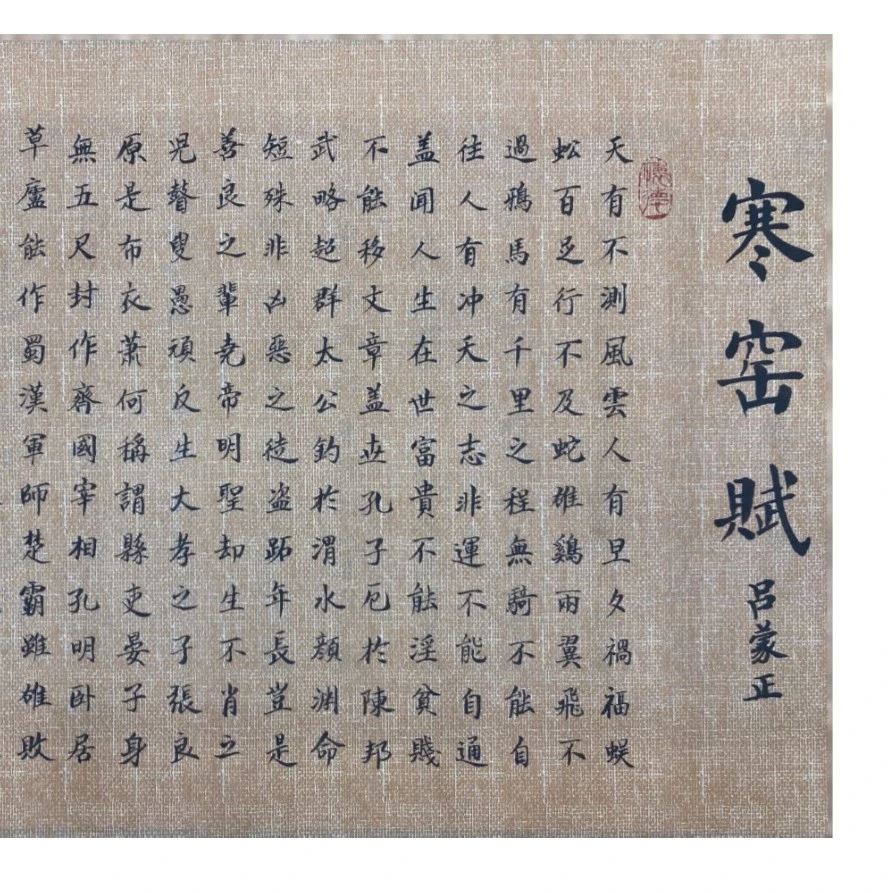 寒窑賦
呂蒙正
天有不測風雲人有旦夕禍福蜈
蚣百足行不及蛇雄鷄兩翼飛不
過鴉馬有千里之程無騎不能自
往人有冲天之志非運不能自通
盖聞人生在世富貴不能淫貧賤
不能移文章盖世孔子厄於陳邦
武略超群太公釣於渭水顔渊命
短殊非凶惡之徒盗跖年長豈是
善良之輩堯帝明聖却生不肖之
児瞽叟愚頑反生大孝之子張良
原是布衣蕭何稱謂縣吏晏子身
無五尺封作齊國宰相孔明卧居
草廬能作蜀漢軍師楚霸雖雄敗